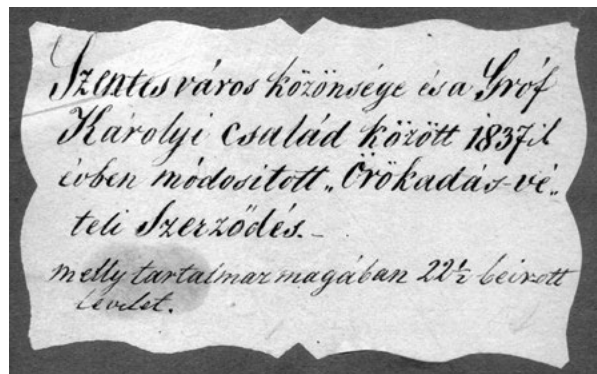 Szentes város közönsége és a Gróf
Károlyi család között 1837ik
évben módosított „Örökadás-vé„
teli Szerződés. –
melly tartalmaz magában 22½ beirott
levelet.